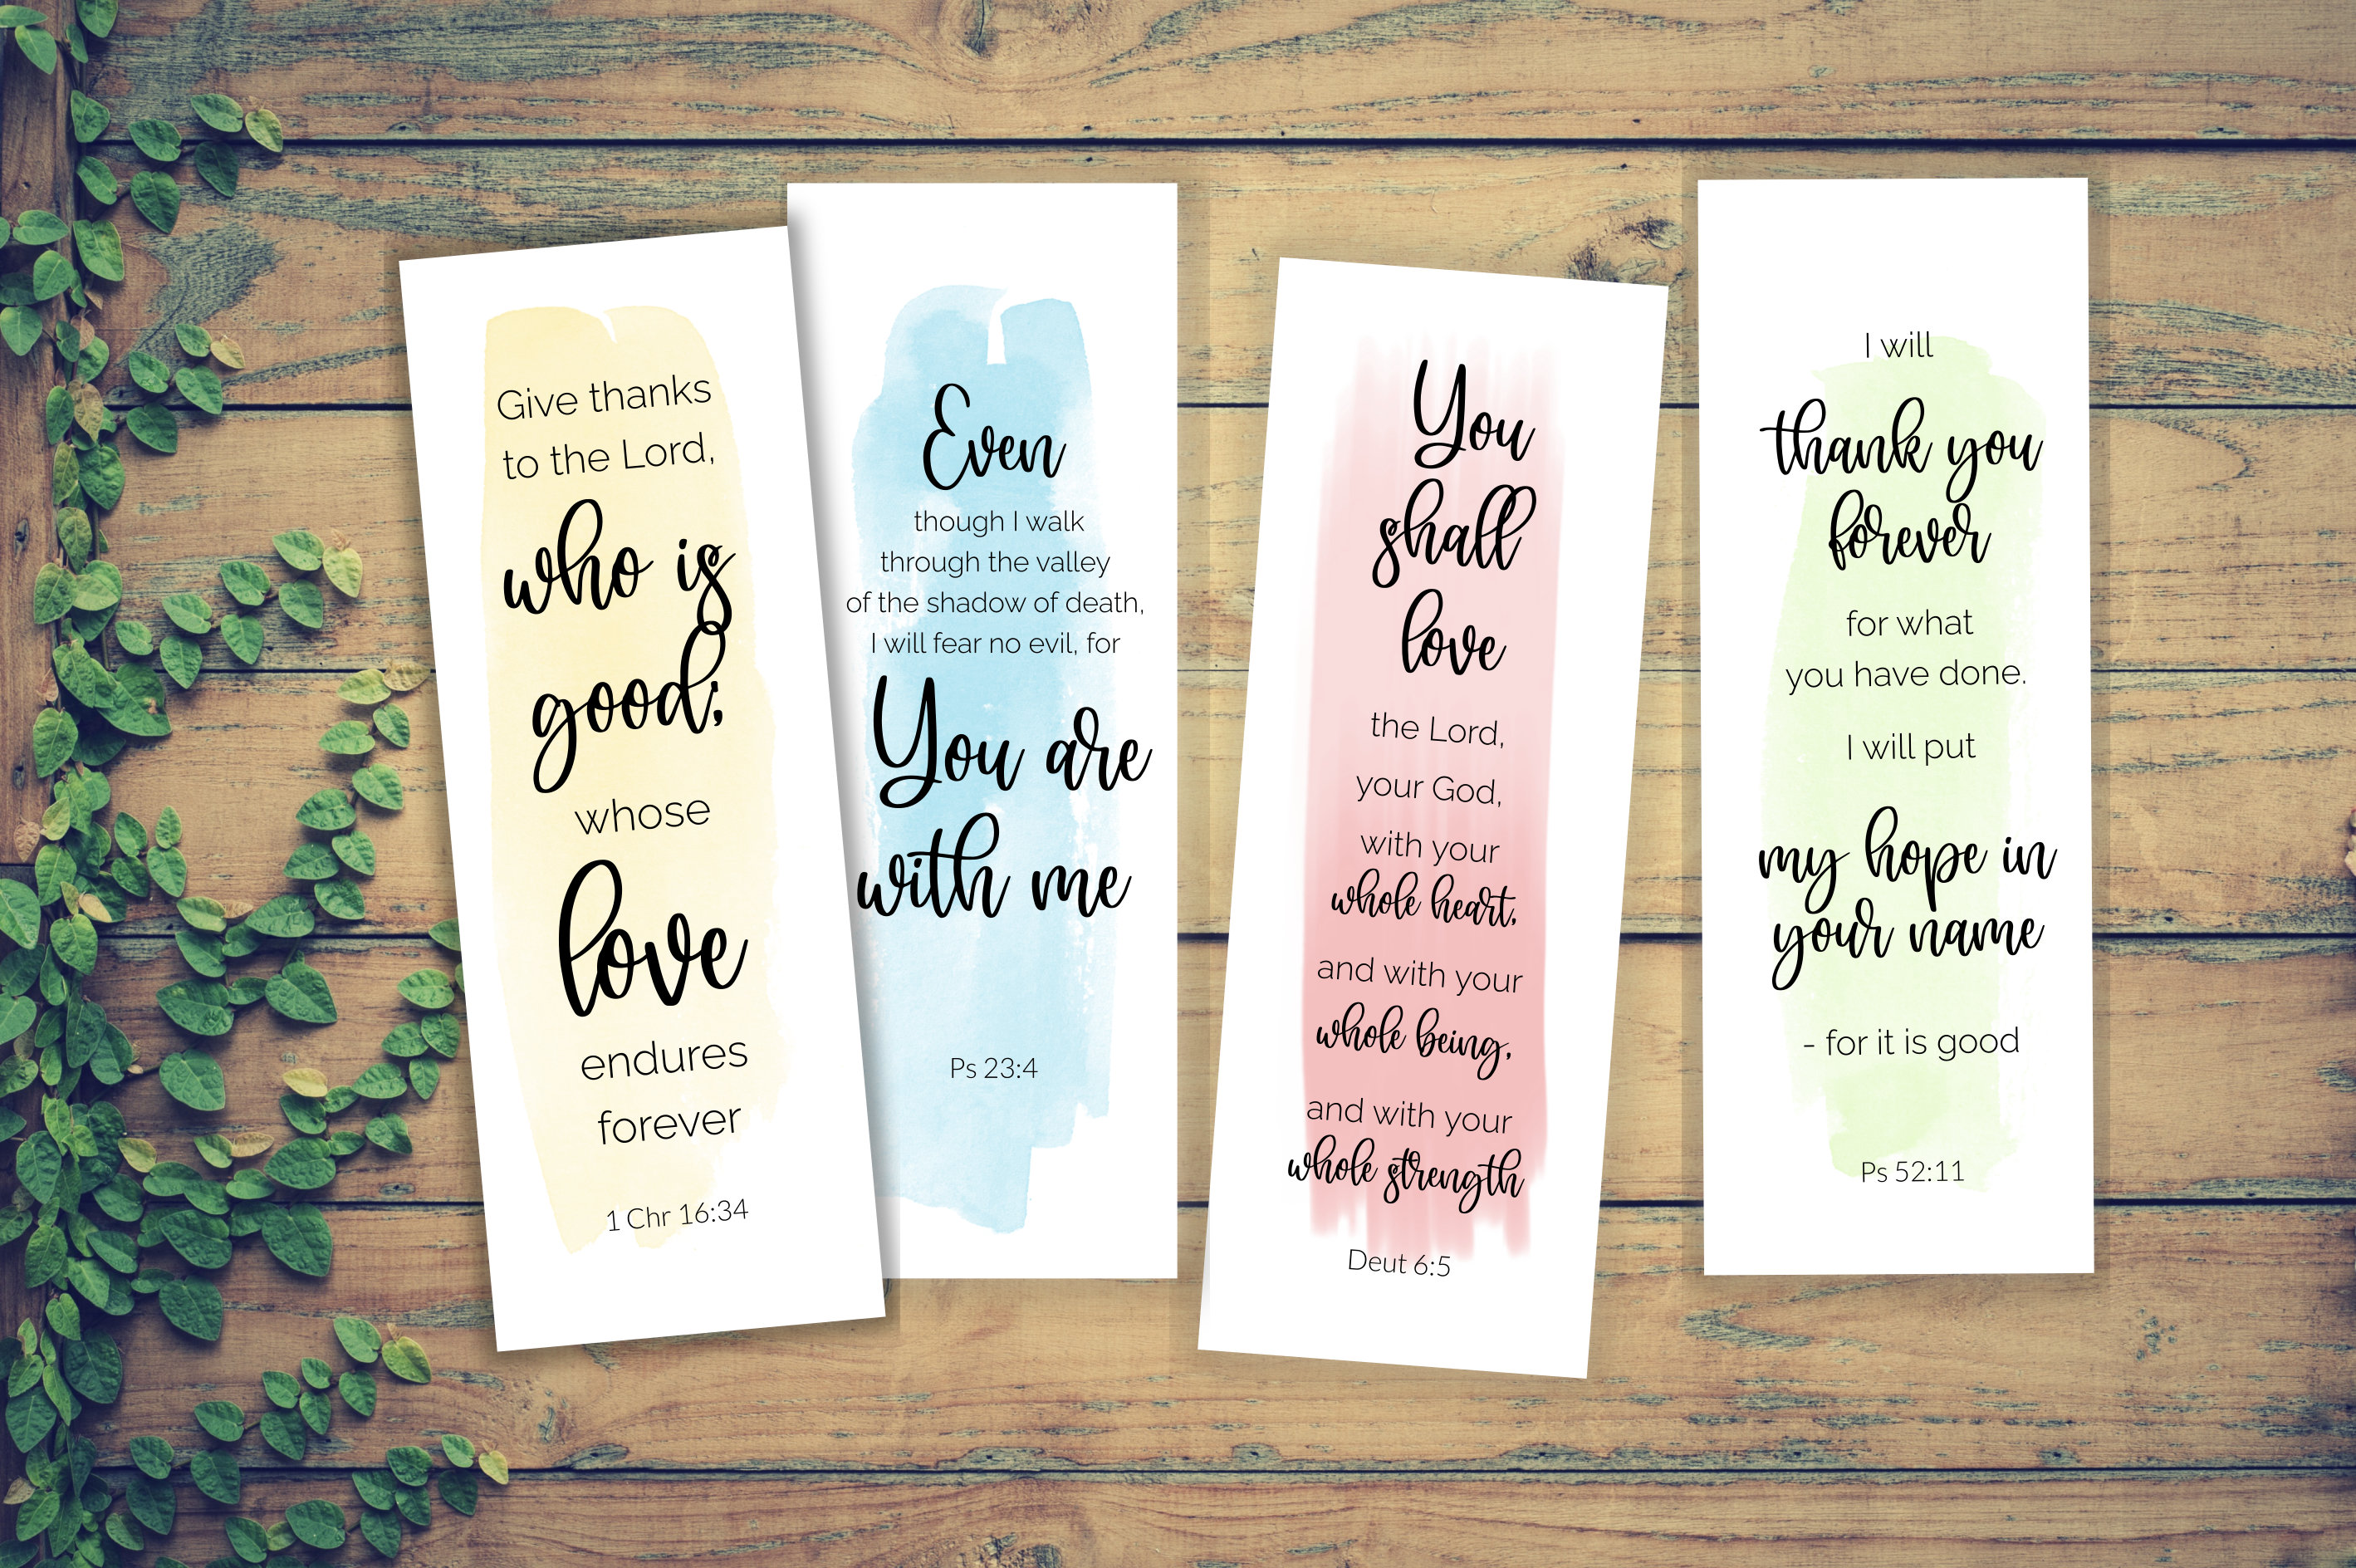 Give thanks
to the Lord,
who is
good;
whose
love
endures
forever
1 Chr 16:34
Even
though I walk
through the valley
of the shadow of death,
I will fear no evil, for
You are
with me
Ps 23:4
You
shall
love
the Lord,
your God,
with your
whole heart,
and with your
whole being,
and with your
whole strength
Deut 6:5
I will
thank you
forever
for what
you have done.
I will put
my hope in
your name
- for it is good
Ps 52:11